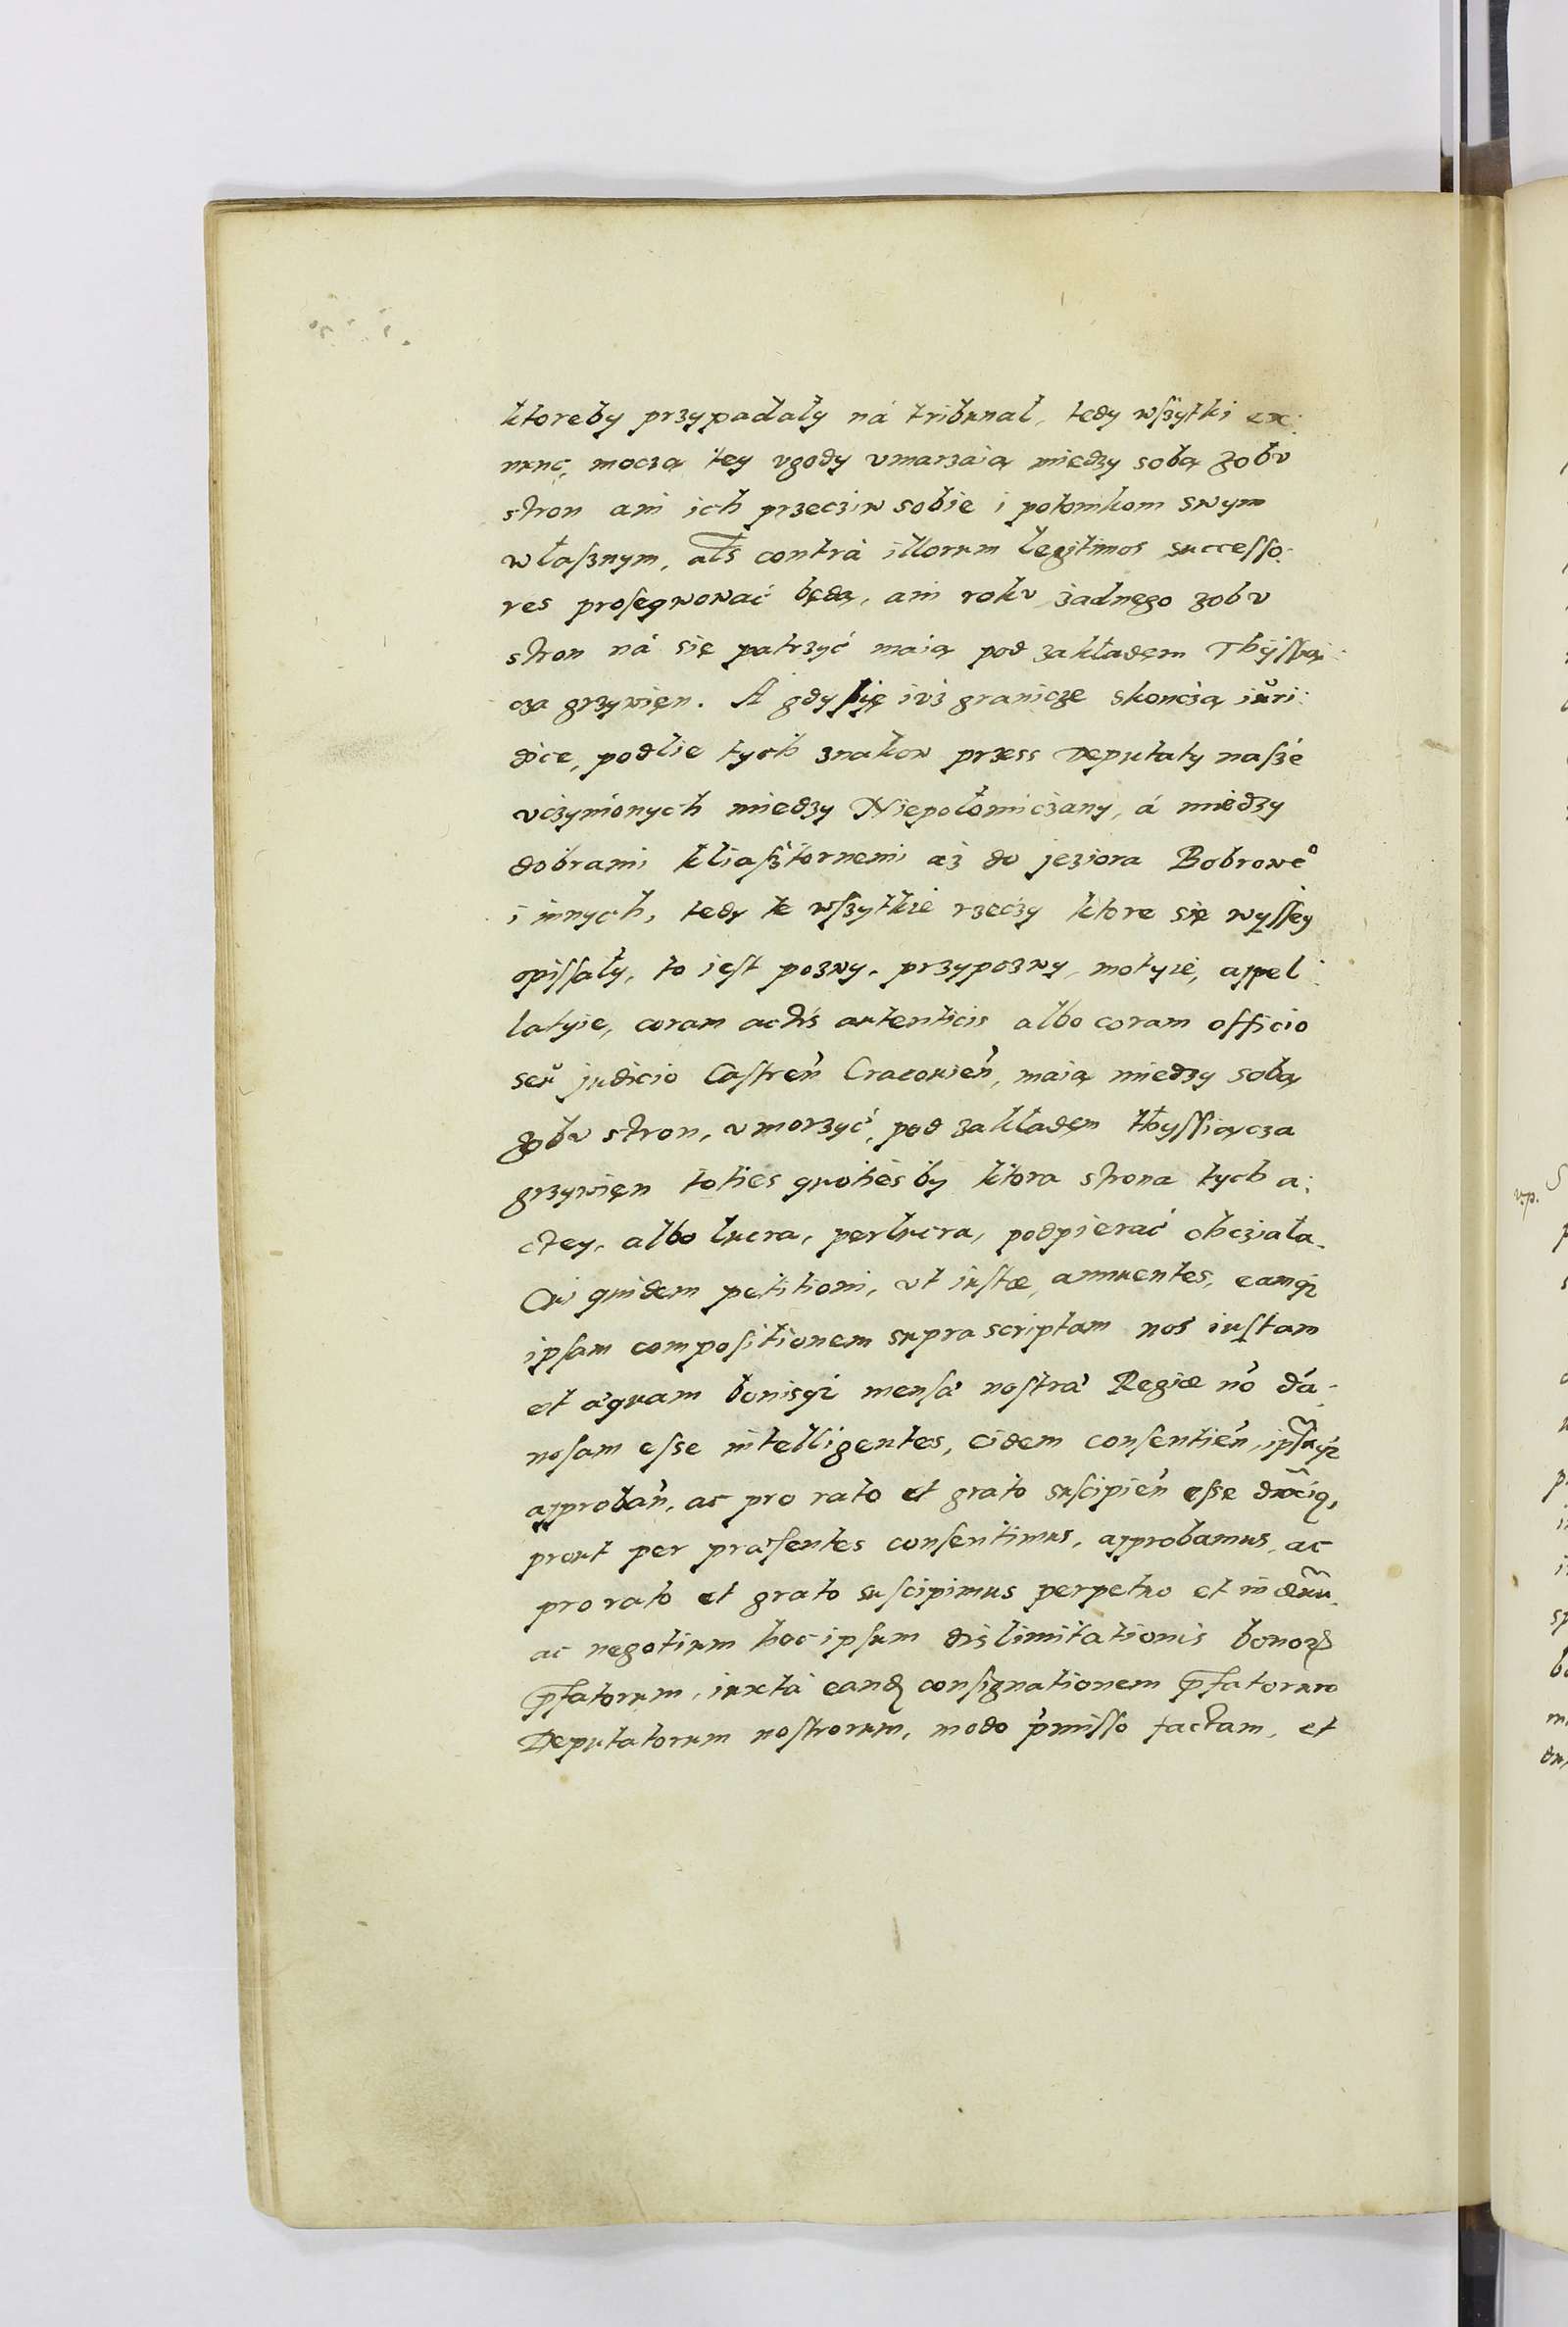 ktoreby przypadały ná tribunal, tedy wszytki ex:
nunc, moczą tey vgody vmarzaią między sobą zobv
stron ani ich przecziw sobie i potomkom swym
własznym, als contrà illorum legitimos successo:
res prosequować będą, ani rokv żadnego zobv
stron ná się patrzyć maią pod zakładem Thyssią:
cza grzywięn. A gdy się iuż granicze skonczą iuri:
dice, podlie tych znakow przess Deputaty nasze
vczynionych miedzy Niepołomiczany, á miedzy
dobrami kliasztornemi aż do jeziora Bobrowe°
i innych, tedy te wszytkie rzeczy ktore się wyssey
opissały, to iest pozwy, przypozwy, motyie, appel:
latyie, coram actis autenticis albo coram officio
seu judicio Castren Cracouien, maią miedzy sobą
zobv stron, vmorzyć, pod zakładęm thyssiącza
grzywięn toties quoties by ktora strona tych a:
ctey, albo lucra, perlucra, podpierać chcziała.
Cui quidem petitioni, vt iustæ, annuentes, eamqz
ipsam compositionem supra scriptam nos iustam
et æquam bonisqz mensæ nostræ Regiæ no da:
nosam esse intelligentes, eidem consentien, ipsaqz
approban, ac pro rato et grato suscipien esse duxiq,
prout per præsentes consentimus, approbamus, ac
pro rato et grato suscipimus perpetuo et in æuu.
ac negotium hoc ipsum dislimitationis bonorꝝ
pfatorum, iuxtà eand consignationem pfatorum
Deputatorum nostrorum, modo pmisso factam, et
v.p.